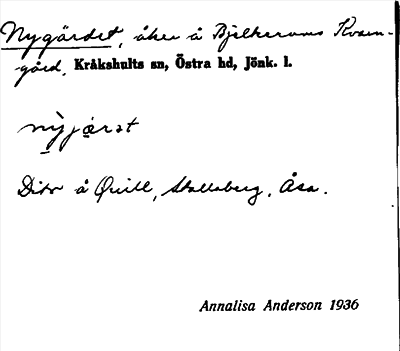 Nygärdet, åker å Bjelkerums Rosen-
gård, Kråkshults sn, Östra hd, Jönk. l.
Dito å Qvill, Stallaberg, Åsa.
Annalisa Anderson 1936